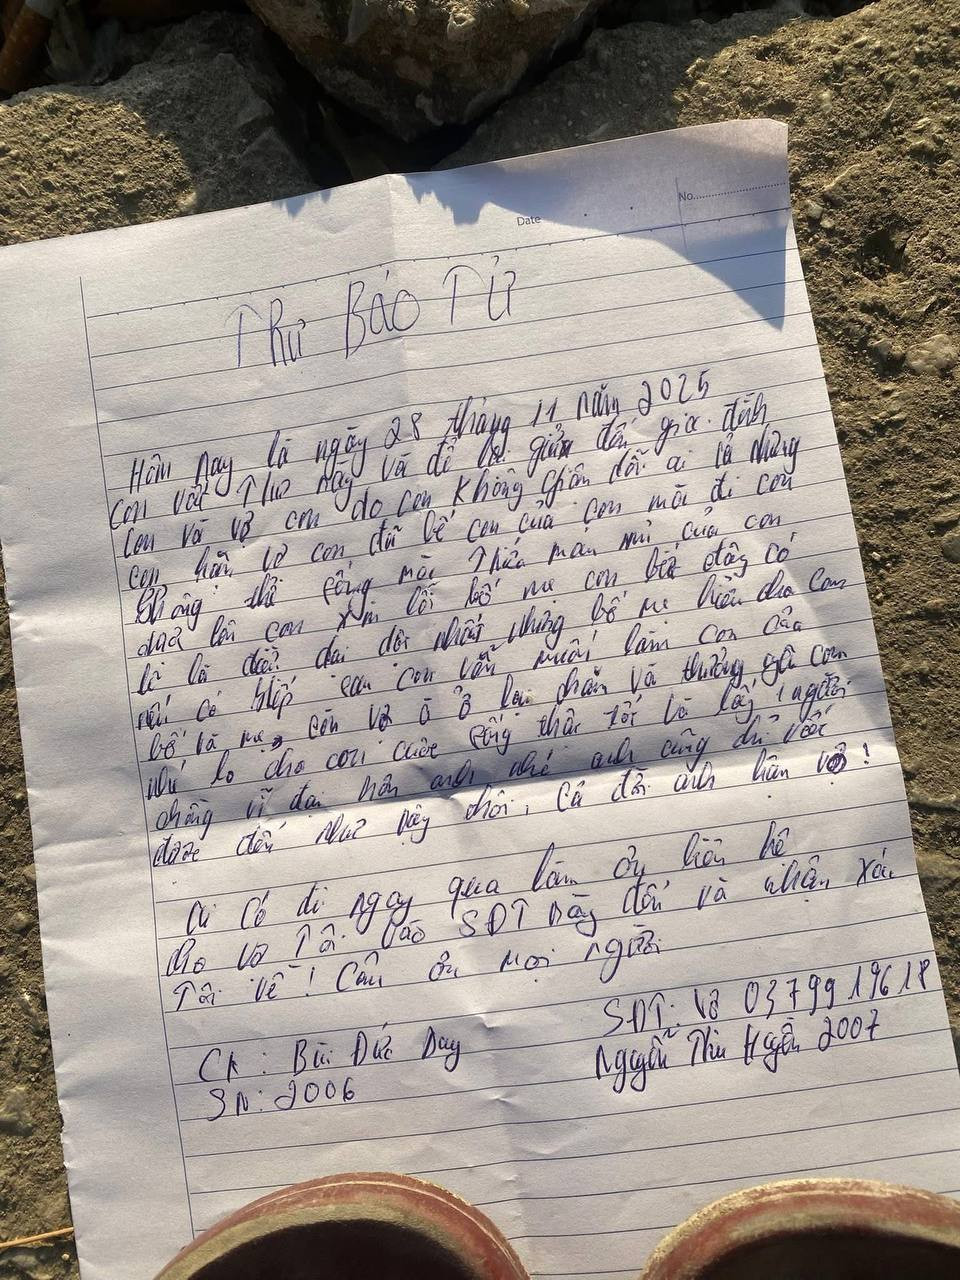 No
Date
THƯ BÁO TỬ
Hôm nay là ngày 28 tháng 11 năm 2025
con viết thư này và để lại gửi đến gia đình
con và vợ con do con không ai là những
con hận vợ con đã bế con của con mãi đi con
không thể sống mãi mãn của con
con xin lỗi bố mẹ con biết đây có
lẽ là điều dại dột nhất nhưng bố mẹ hiểu cho con
nếu có kiếp sau con vẫn muốn làm con của
bố và mẹ, còn vợ ở lại
lo cho con cuộc sống thật tốt và lấy 1 người
chồng vĩ đại hơn anh nhé anh cũng chỉ viết
được đến như vậy thôi, cả đời anh hận vợ!
Ai có đi ngay qua làm ơn liên hệ
cho vợ tôi vào SĐT này đến và nhận xác
tôi về! Cảm ơn mọi người
SĐT: Vợ 0379919618
CK: Bùi Đức Day
Nguyễn Thu 2007
SN: 2006